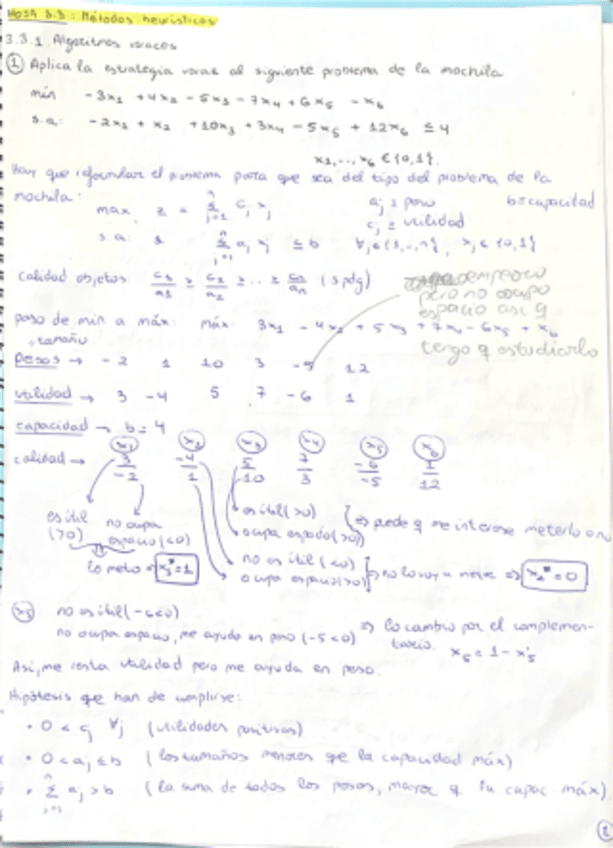 HOJA 3.3: Métodos heurísticos
3.3.1. Algoritmos voraces
① Aplica la estrategia voraz al siguiente problema de la mochila
min -3x₁ +4x₂ -5x₃ -7x₄ +6x₅ -x₆
s.a: -2x₁ + x₂ +10x₃ +3x₄ -5x₅ +12x₆ ≤ 4
x₁,..,x₆ ∈ {0,1}.
Hay que reformular el problema para que sea del tipo del problema de la
mochila:
max z = Σ cⱼ xⱼ aⱼ ≡ peso b≡capacidad
j=1 n cⱼ ≡ utilidad
s.a: Σ aⱼ xⱼ ≤ b ∀j∈{1,..,n}, xⱼ ∈ {0,1}
j=1 n
calidad objetos c₁/a₁ ≥ c₂/a₂ ≥ .. ≥ cₙ/aₙ (spdg)
empeoro
pero no ocupo
espacio así q
tengo q estudiarlo
paso de min a máx: máx. 3x₁ -4x₂ +5x₃ +7x₄ -6x₅ +x₆
tamaño
pesos → -2 1 10 3 -5 12
utilidad → 3 -4 5 7 -6 1
capacidad → b=4
x₁ x₂ x₃ x₄ x₅ x₆
calidad → 3/-2 -4/1 5/10 7/3 -6/-5 1/12
es útil (>0) no ocupa espacio (<0)
lo meto ⇒ =1
es útil (>0)
ocupa espacio (>0) ⇒ puede q me interese meterlo o no
no es útil (<0)
ocupa espacio (>0) ⇒ no lo voy a meter ⇒ x₂*=0
x₅ no es útil (-6<0)
no ocupa espacio, me ayuda en peso (-5<0) ⇒ lo cambio por el complemen-
tario. x₅ = 1 - x'₅
Así, me resta utilidad pero me ayuda en peso.
Hipótesis que han de cumplirse:
• 0 < cⱼ ∀j (utilidades positivas)
• 0 < aⱼ ≤ b (los tamaños menores que la capacidad máx)
• Σ aⱼ > b (la suma de todos los pesos, mayor q capac. máx)
j=1 n
①